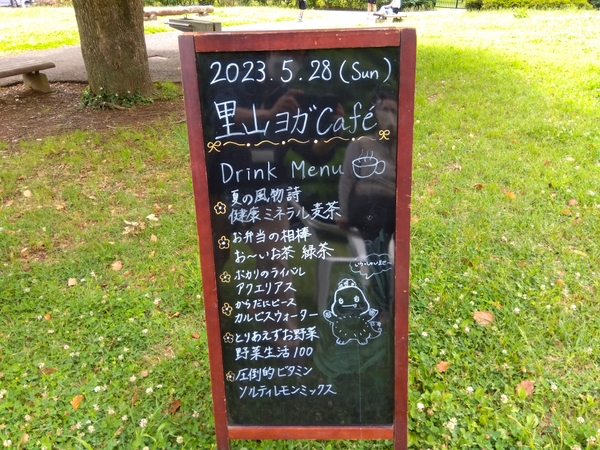 2023.5.28(Sun)
里山ヨガCafé
Drink Menu
夏の風物詩
健康ミネラル麦茶
お弁当の相棒
お〜いお茶 緑茶
ポカリのライバル
アクエリアス
からだにピース
カルピスウォーター
とりあえずお野菜
野菜生活100
圧倒的ビタミン
ソルティレモンミックス